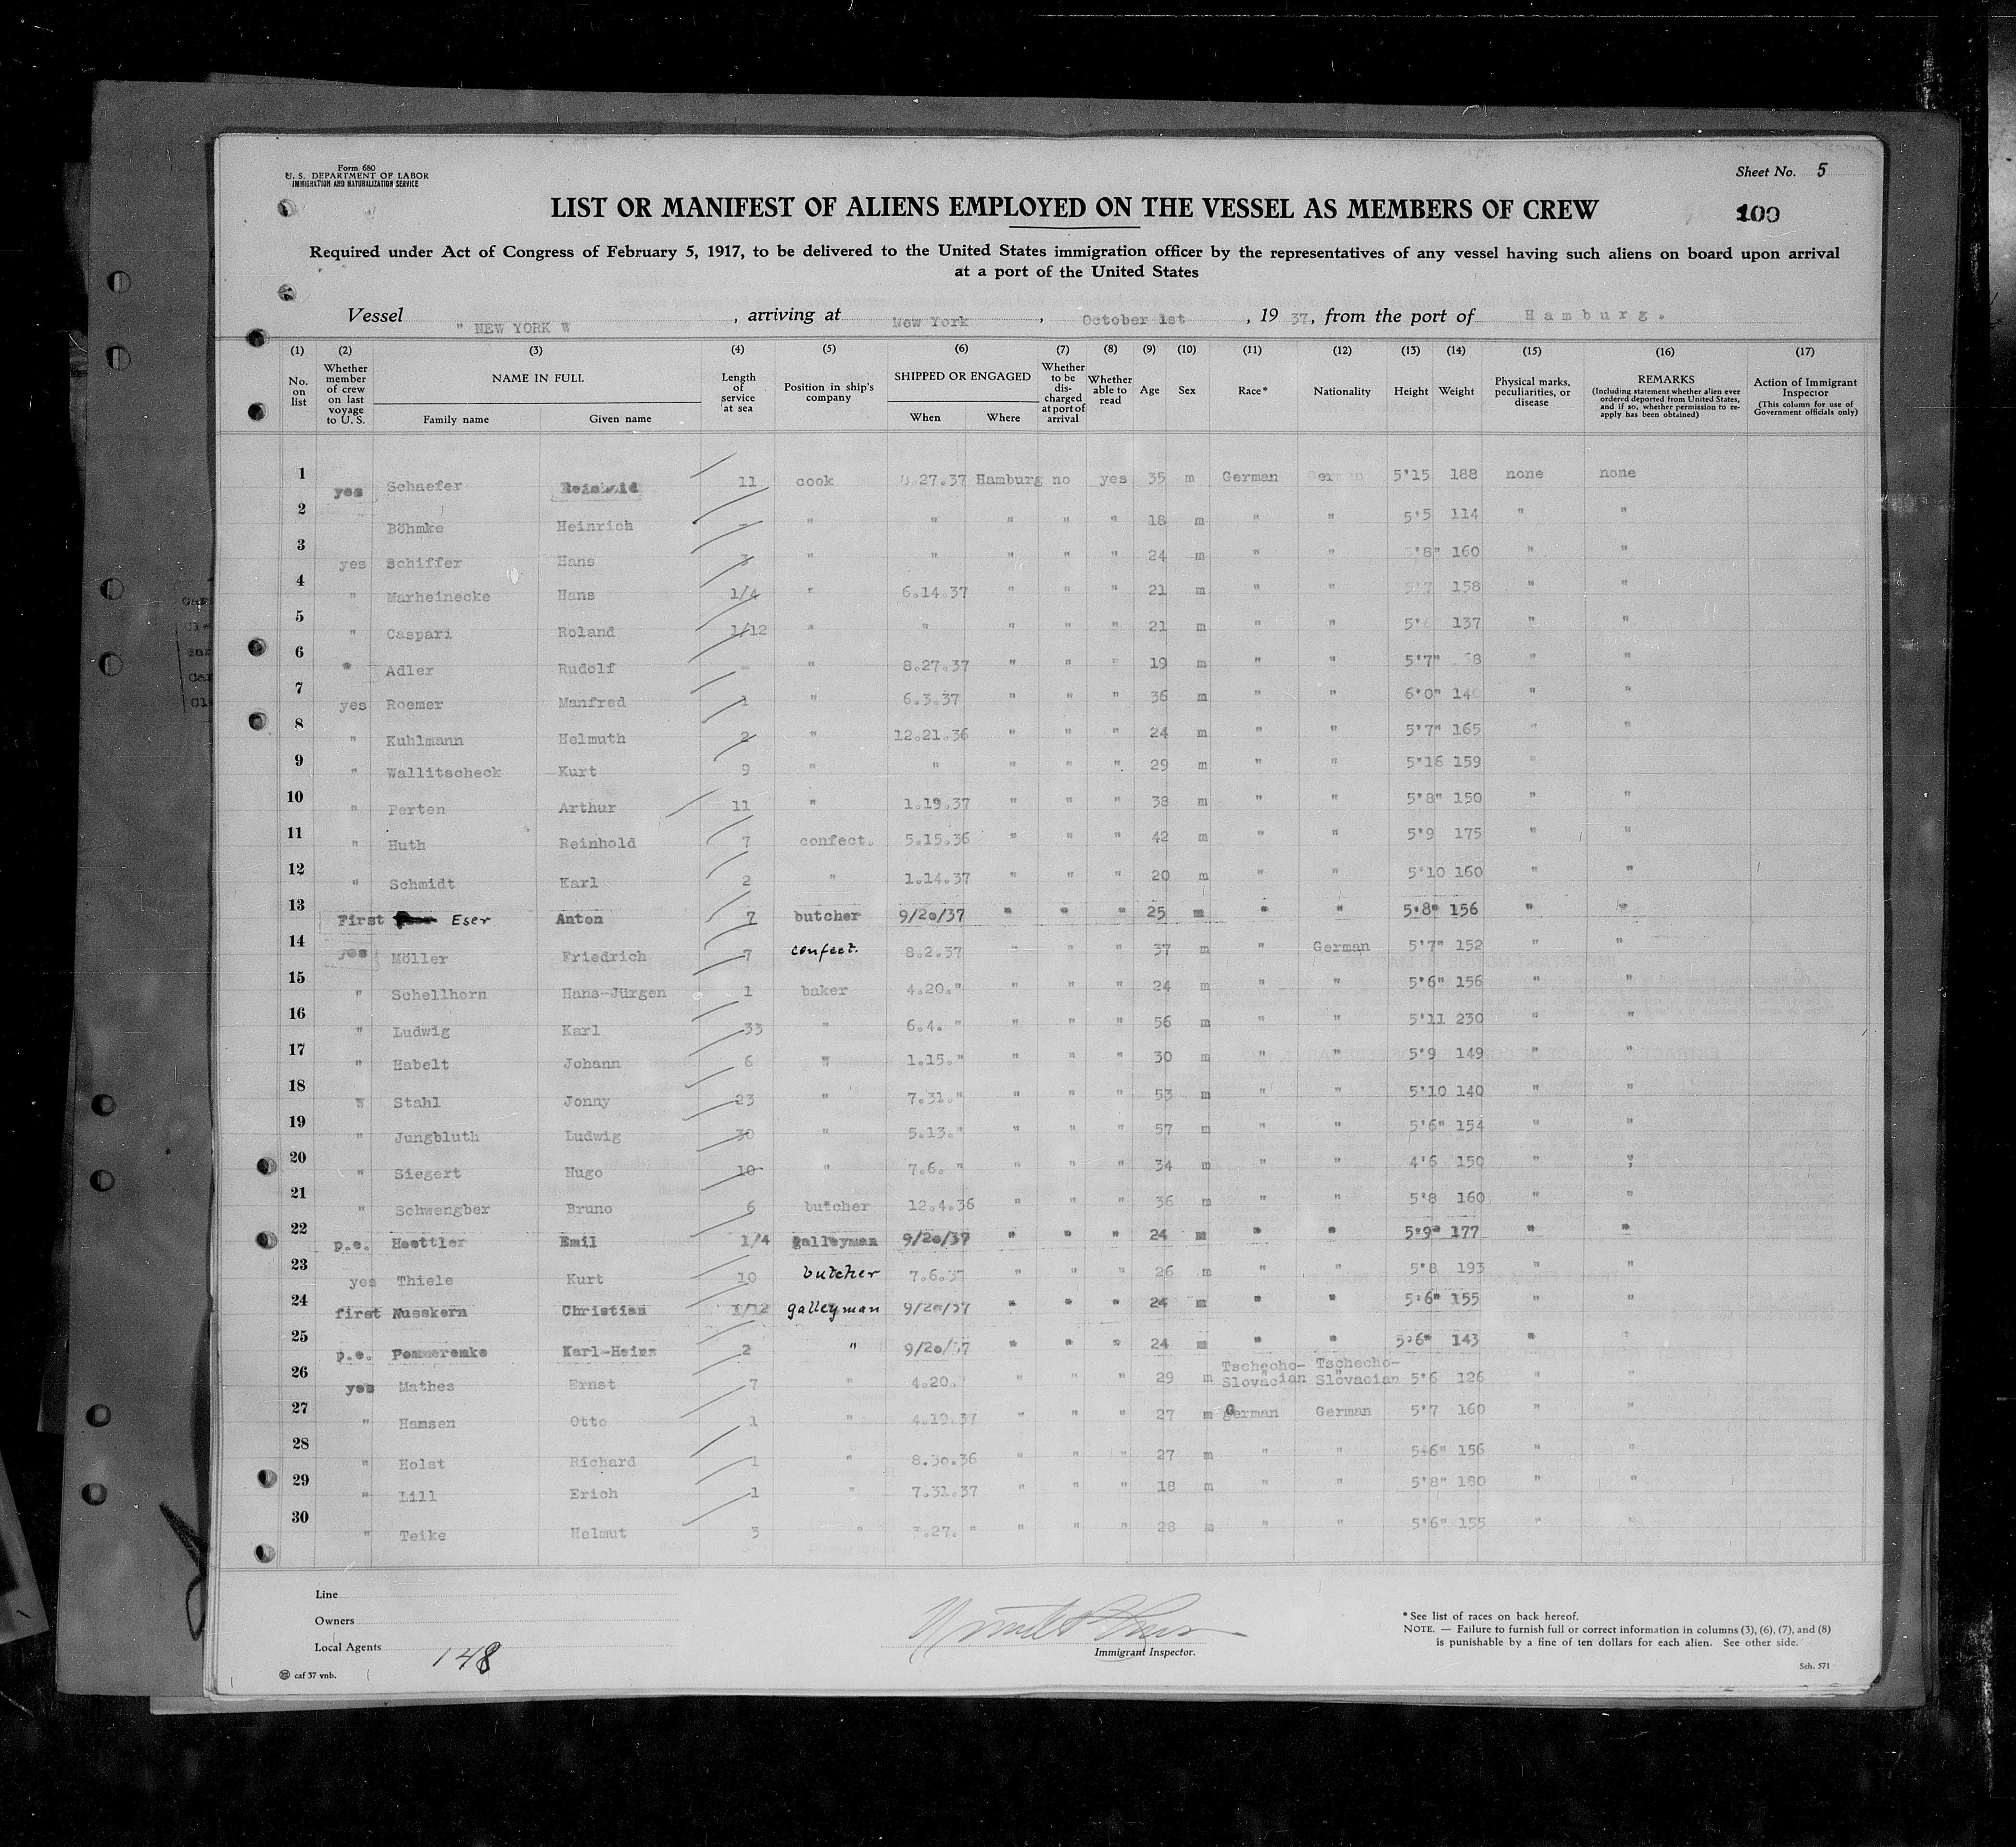 Form 680
U. S. DEPARTMENT OF LABOR
IMMIGRATION AND NATURALIZATION SERVICE
Sheet No. 5
LIST OR MANIFEST OF ALIENS EMPLOYED ON THE VESSEL AS MEMBERS OF CREW
100
Required under Act of Congress of February 5, 1917, to be delivered to the United States immigration officer by the representatives of any vessel having such aliens on board upon arrival
at a port of the United States
Vessel " NEW YORK W , arriving at New York , October 1st , 19 37, from the port of Hamburg.
(1) (2) (3) (4) (5) (6) (7) (8) (9) (10) (11) (12) (13) (14) (15) (16) (17)
No. on list Whether member of crew on last voyage to U. S. NAME IN FULL Family name Given name Length of service at sea Position in ship's company SHIPPED OR ENGAGED When Where Whether to be discharged at port of arrival Whether able to read Age Sex Race* Nationality Height Weight Physical marks, peculiarities, or disease REMARKS (Including statement whether alien ever ordered deported from United States, and if so, whether permission to re-apply has been obtained) Action of Immigrant Inspector (This column for use of Government officials only)
1 yes Schaefer Reinhold 11 cook .27.37 Hamburg no yes 35 m German German 5'15 188 none none
2 Böhmke Heinrich - " " " " " 18 m " " 5'5 114 " "
3 yes Schiffer Hans 3 " " " " " 24 m " " 8" 160 " "
4 " Marheinecke Hans 1/4 " 6.14.37 " " " 21 m " " 158 " "
5 " Caspari Roland 1/12 " " " " " 21 m " " 5' 137 " "
6 " Adler Rudolf - " 8.27.37 " " " 19 m " " 5'7" " "
7 yes Roemer Manfred 1 " 6.3.37 " " " 36 m " " 6'0" 140 " "
8 " Kuhlmann Helmuth 2 " 12.21.36 " " " 24 m " " 5'7" 165 " "
9 " Wallitscheck Kurt 9 " " " " " 29 m " " 5'16 159 "
10 " Perten Arthur 11 " 1.19.37 " " " 38 m " " 5'8" 150 " "
11 " Huth Reinhold 7 confect. 5.15.36 " " " 42 m " " 5'9 175 " "
12 " Schmidt Karl 2 " 1.14.37 " " " 20 m " " 5'10 160 " "
13 First Eser Anton 7 butcher 9/20/37 " " " 25 m " " 5'8" 156 " "
14 yes Möller Friedrich 7 confect. 8.2.37 " " " 37 m " German 5'7" 152 " "
15 " Schellhorn Hans-Jürgen 1 baker 4.20." " " " 24 m " " 5'6" 156 " "
16 " Ludwig Karl 33 " 6.4. " " " " 56 m " " 5'11 230 " "
17 " Habelt Johann 6 " 1.15." " " " 30 m " " 5'9 149 " "
18 " Stahl Jonny 23 " 7.31." " " " 53 m " " 5'10 140 " "
19 " Jungbluth Ludwig 30 " 5.13." " " " 57 m " " 5'6" 154 " "
20 " Siegert Hugo 10 " 7.6. " " " " 34 m " " 4'6 150 " "
21 " Schwengber Bruno 6 butcher 12.4.36 " " " 36 m " " 5'8 160 " "
22 p.e. Hoettler Emil 1/4 galleyman 9/20/37 " " " 24 m " " 5'9" 177 " "
23 yes Thiele Kurt 10 butcher 7.6.37 " " " 26 m " " 5'8 193 " "
24 first Nusskern Christian 1/12 galleyman 9/20/37 " " " 24 m " " 5'6" 155 " "
25 p.e. Pommerenke Karl-Heinz 2 " 9/20/37 " " " 24 m " " 5'6" 143 " "
26 yes Mathes Ernst 7 " 4.20. " " " 29 m Tschecho-Slovacian Tschecho-Slovacian 5'6 126 " "
27 " Hansen Otto 1 " 4.19.37 " " " 27 m German German 5'7 160 " "
28 " Holst Richard 1 " 8.30.36 " " " 27 m " " 5'6" 156 " "
29 " Lill Erich 1 " 7.31.37 " " " 18 m " " 5'8" 180 " "
30 " Teike Helmut 3 " 3.27. " " " " 28 m " " 5'6" 155 " "
Line
Owners
Local Agents
148
caf 37 vnb.
Immigrant Inspector.
* See list of races on back hereof.
NOTE. — Failure to furnish full or correct information in columns (3), (6), (7), and (8)
is punishable by a fine of ten dollars for each alien. See other side.
Sch. 571